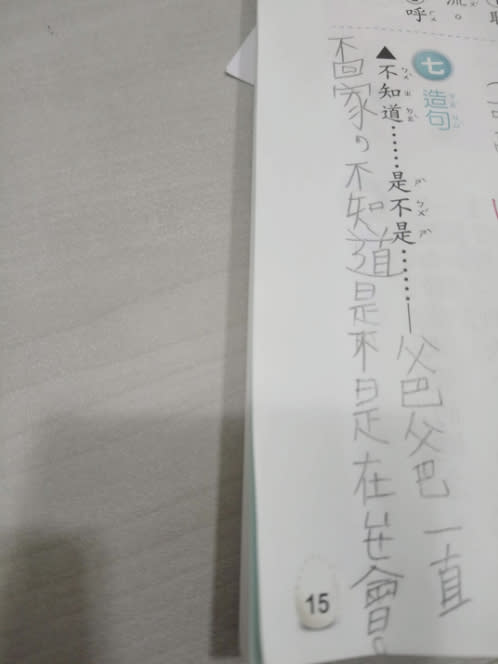 呼。
七 造句
▲不知道……是不是……—爸爸一直
不回家,不知道是不是在开會。
15